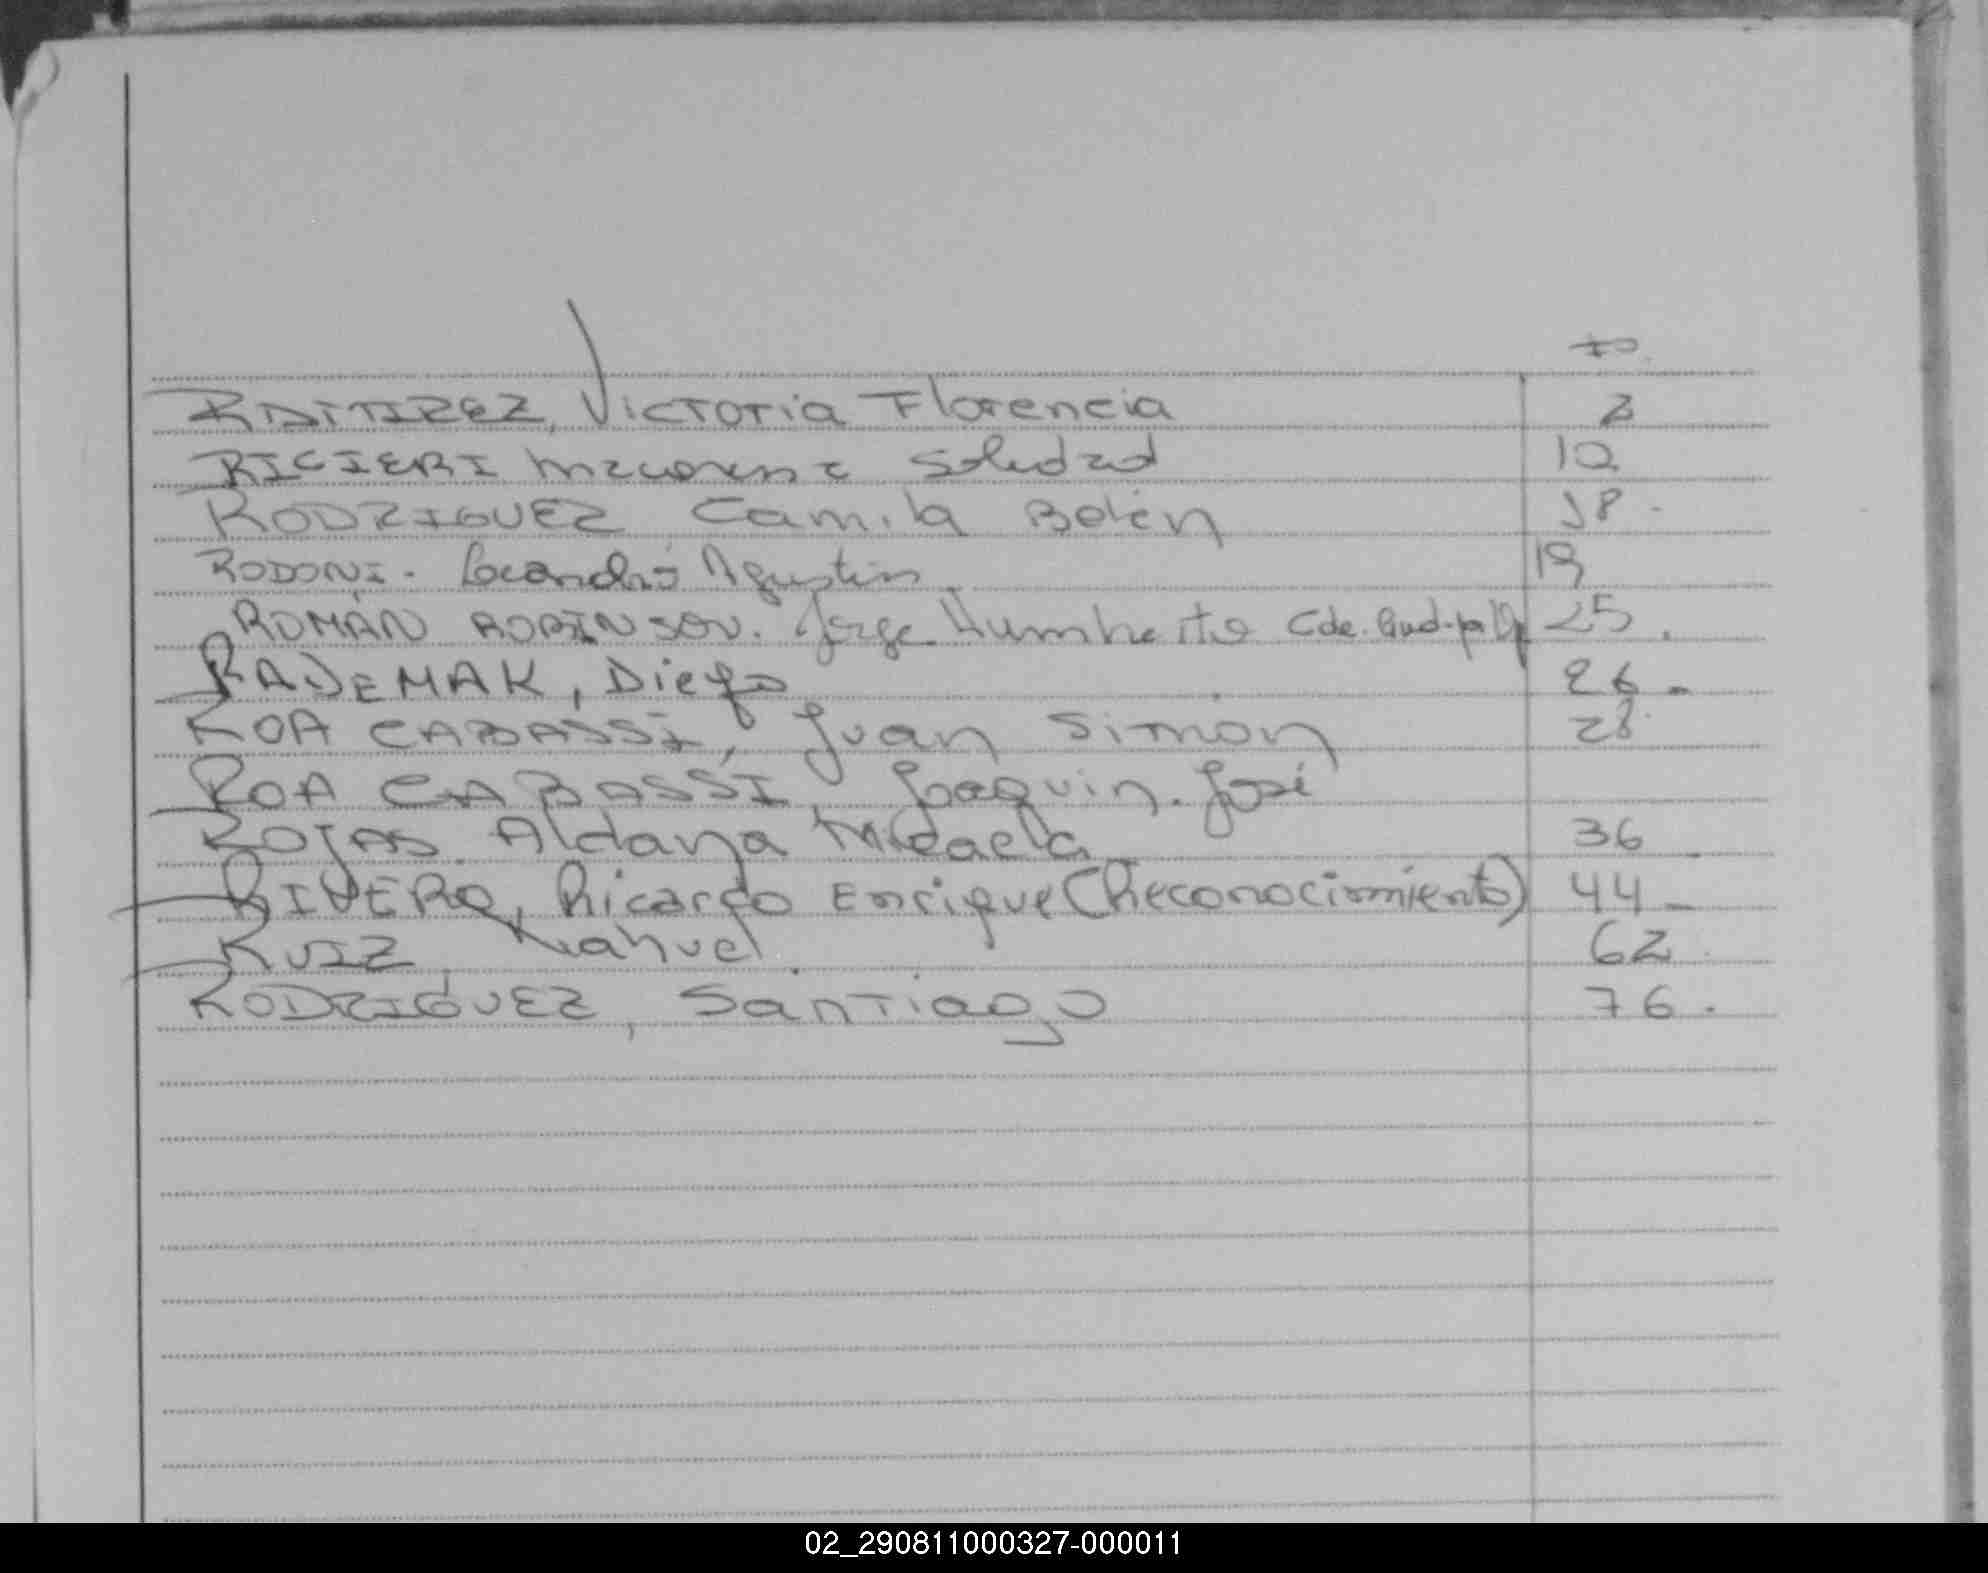 Fº
RAMIREZ, Victoria Florencia 2
RICIERI Macarena Soledad 12
RODRIGUEZ Camila Belén 18.
RODONI. Leandro Agustin 19
ROMÁN ROBINSON. Jorge Humberto Cde. 25.
RADEMAK, Diego 26.
ROA CABASSI, Juan Simón 28
ROA CABASSI, Joaquin José
ROJAS. Aldana Micaela 36
RIVERO, Ricardo Enrique (Reconocimiento) 44
RUIZ, Nahuel. 62.
RODRIGUEZ, Santiago 76.
02_290811000327-000011